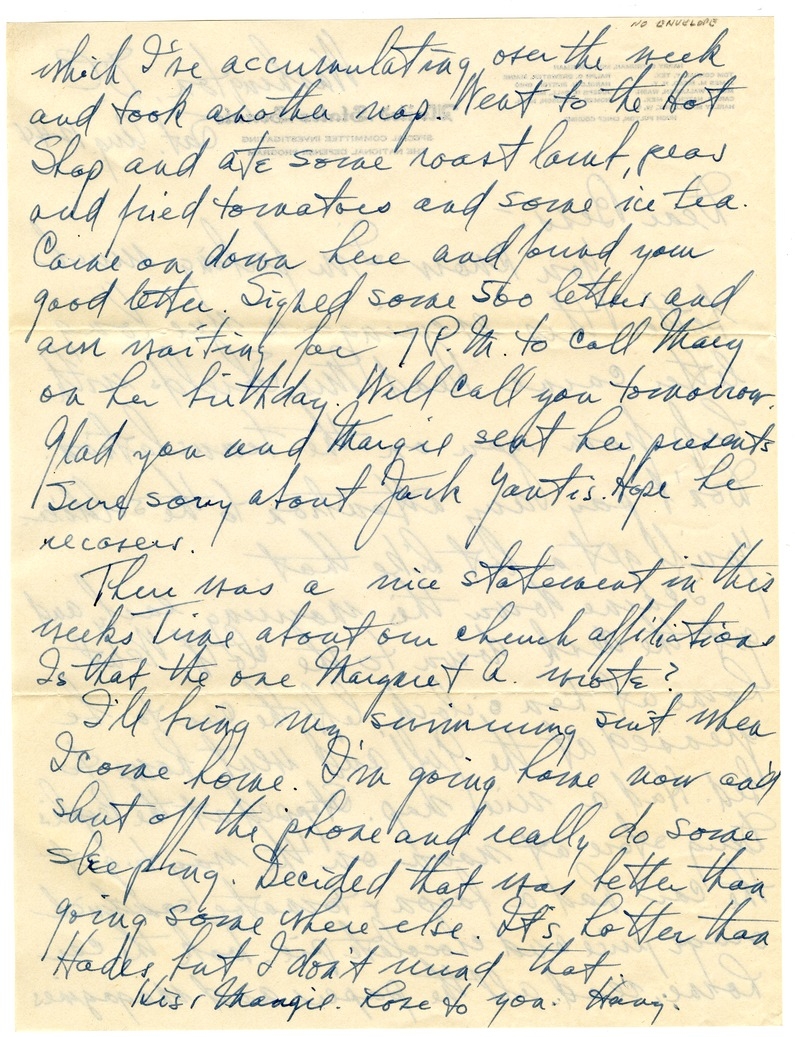 NO ENVELOPE
which I've accumulating over the week
and took another nap. Went to the Hot
Shop and ate some roast lamb, peas
and fried tomatoes and some ice tea.
Came on down here and found your
good letter. Signed some 500 letters and
am waiting for 7 P.M. to call Mary
on her birthday. Will call you tomorrow.
Glad you and Margie sent her presents
Sure sorry about Jack Yantis. Hope he
recovers.
There was a nice statement in this
weeks Time about our church affiliations
Is that the one Margaret A. wrote?
I'll bring my swimming suit when
I come home. I'm going home now and
shut off the phone and really do some
sleeping. Decided that was better than
going some where else. It's hotter than
Hades but I don't mind that.
Kiss Margie. Love to you. Harry.